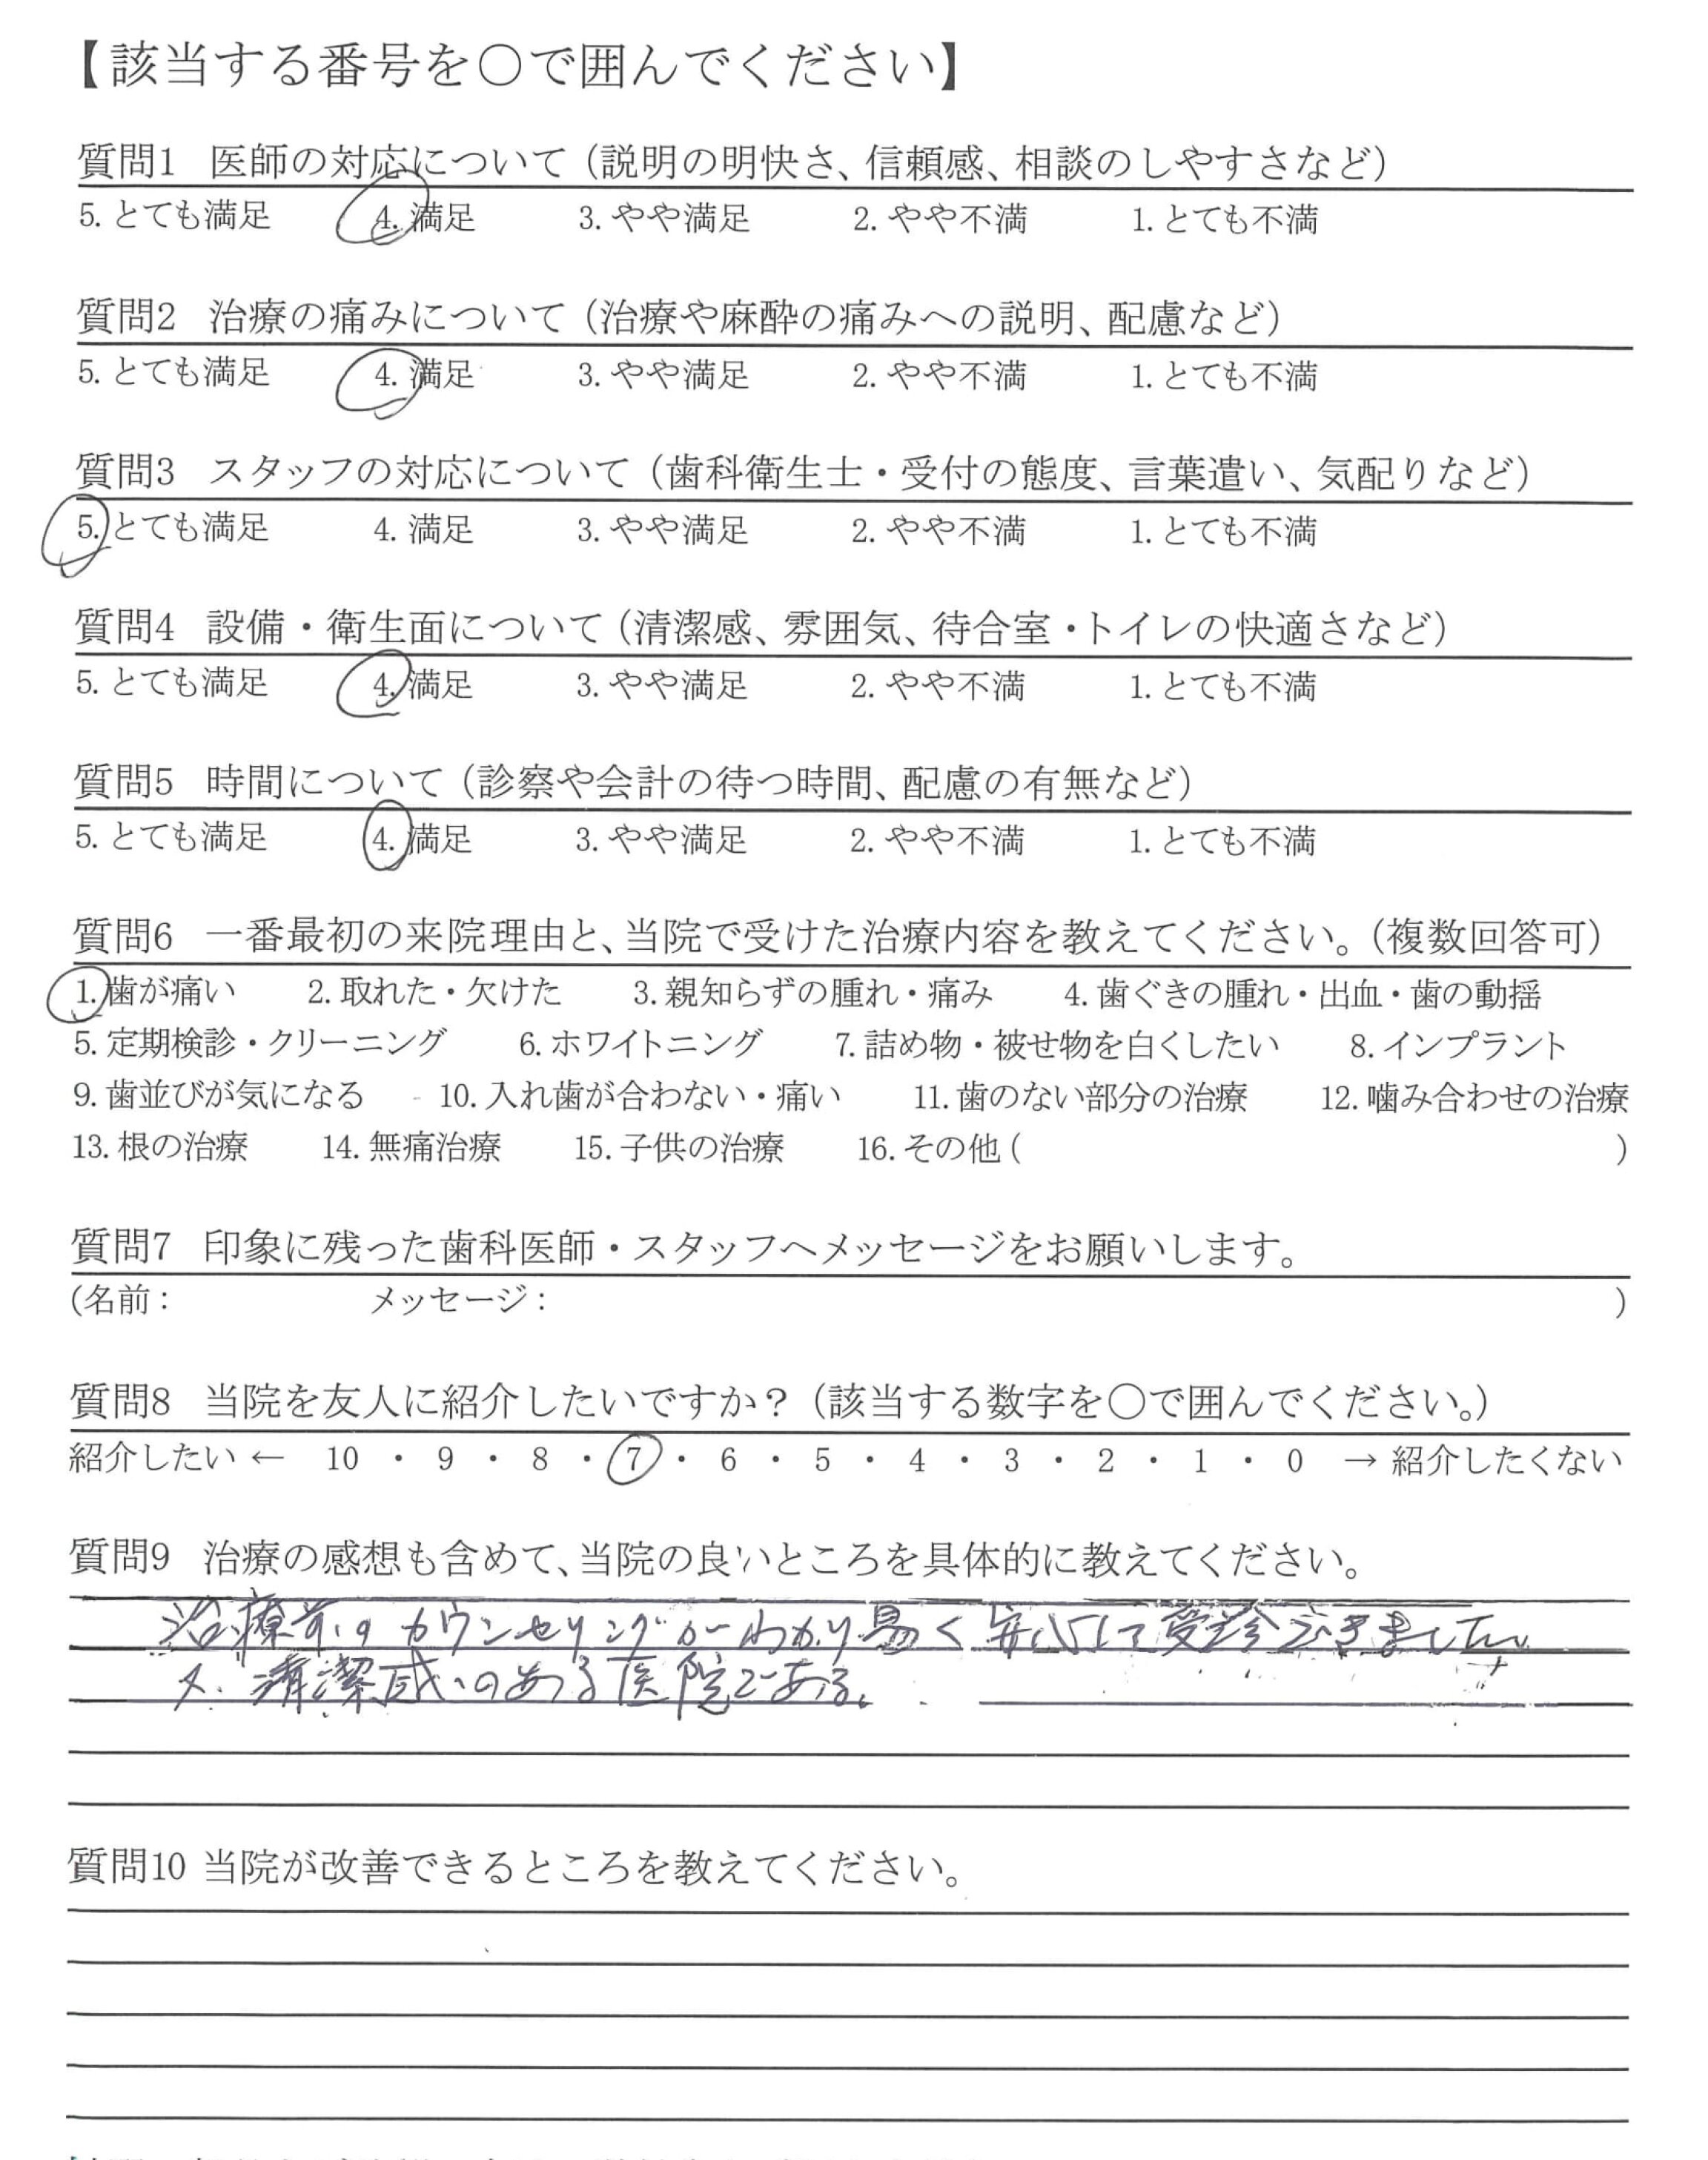 【該当する番号を〇で囲んでください】
質問1 医師の対応について（説明の明快さ、信頼感、相談のしやすさなど）
5. とても満足 4. 満足 3. やや満足 2. やや不満 1. とても不満
質問2 治療の痛みについて（治療や麻酔の痛みへの説明、配慮など）
5. とても満足 4. 満足 3. やや満足 2. やや不満 1. とても不満
質問3 スタッフの対応について（歯科衛生士・受付の態度、言葉遣い、気配りなど）
5. とても満足 4. 満足 3. やや満足 2. やや不満 1. とても不満
質問4 設備・衛生面について（清潔感、雰囲気、待合室・トイレの快適さなど）
5. とても満足 4. 満足 3. やや満足 2. やや不満 1. とても不満
質問5 時間について（診察や会計の待つ時間、配慮の有無など）
5. とても満足 4. 満足 3. やや満足 2. やや不満 1. とても不満
質問6 一番最初の来院理由と、当院で受けた治療内容を教えてください。（複数回答可）
1. 歯が痛い 2. 取れた・欠けた 3. 親知らずの腫れ・痛み 4. 歯ぐきの腫れ・出血・歯の動揺
5. 定期検診・クリーニング 6. ホワイトニング 7. 詰め物・被せ物を白くしたい 8. インプラント
9. 歯並びが気になる 10. 入れ歯が合わない・痛い 11. 歯のない部分の治療 12. 噛み合わせの治療
13. 根の治療 14. 無痛治療 15. 子供の治療 16. その他 ( )
質問7 印象に残った歯科医師・スタッフへメッセージをお願いします。
(名前： メッセージ： )
質問8 当院を友人に紹介したいですか？（該当する数字を〇で囲んでください。）
紹介したい ← 10 ・ 9 ・ 8 ・ 7 ・ 6 ・ 5 ・ 4 ・ 3 ・ 2 ・ 1 ・ 0 → 紹介したくない
質問9 治療の感想も含めて、当院の良いところを具体的に教えてください。
治療前のカウンセリングがわかり易く安心して受診できました。
又、清潔感のある医院である。
質問10 当院が改善できるところを教えてください。